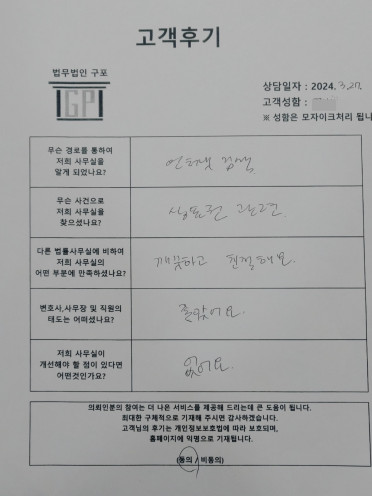 고객후기
법무법인 구포
GP
상담일자 : 2024. 3.27.
고객성함 :
※ 성함은 모자이크처리 됩니
무슨 경로를 통하여
저희 사무실을
알게 되었나요?
인터넷 검색
무슨 사건으로
저희 사무실을
찾으셨나요?
상표권 관련.
다른 법률사무실에 비하여
저희 사무실의
어떤 부분에 만족하셨나요?
깨끗하고 친절해요.
변호사,사무장 및 직원의
태도는 어떠셨나요?
좋았어요.
저희 사무실이
개선해야 할 점이 있다면
어떤것인가요?
없어요.
의뢰인분의 참여는 더 나은 서비스를 제공해 드리는데 큰 도움이 됩니다.
최대한 구체적으로 기재해 주시면 감사하겠습니다.
고객님의 후기는 개인정보보호법에 따라 보호되며,
홈페이지에 익명으로 기재됩니다.
(동의 / 비동의)